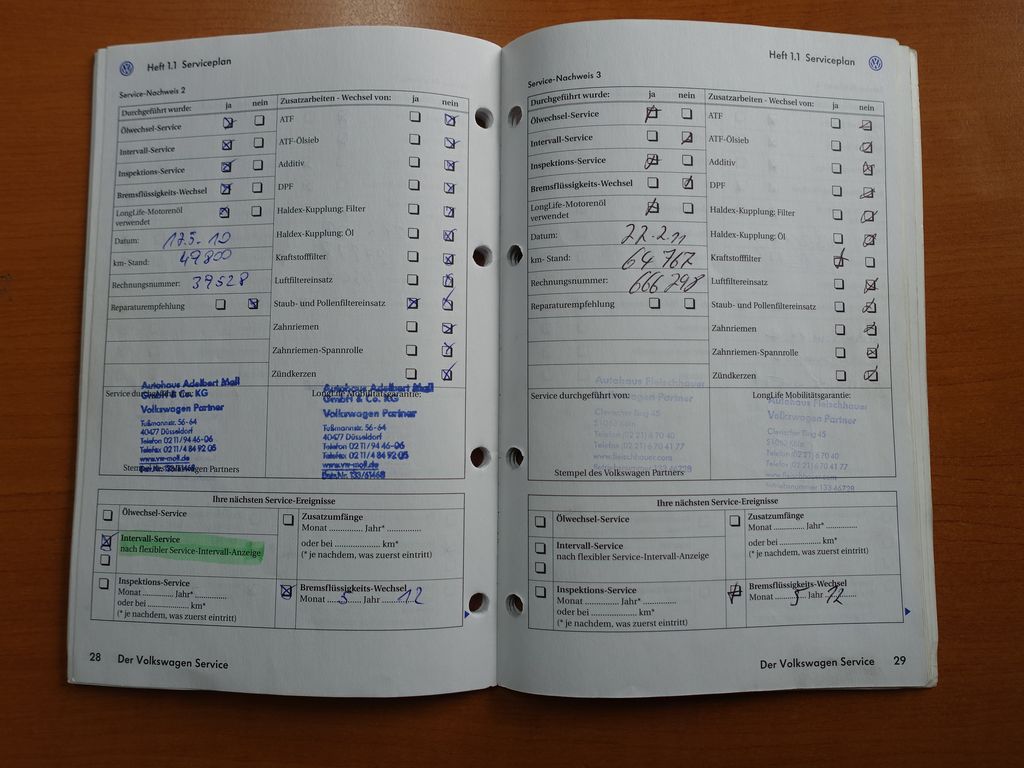 Heft 1.1 Serviceplan
Service-Nachweis 2
Durchgeführt wurde: ja nein
Ölwechsel-Service
Intervall-Service
Inspektions-Service
Bremsflüssigkeits-Wechsel
LongLife-Motorenöl
verwendet
Datum: 17.5.10
km- Stand: 49800
Rechnungsnummer: 39528
Reparaturempfehlung
Zusatzarbeiten - Wechsel von: ja nein
ATF
ATF-Ölsieb
Additiv
DPF
Haldex-Kupplung: Filter
Haldex-Kupplung: Öl
Kraftstofffilter
Luftfiltereinsatz
Staub- und Pollenfiltereinsatz
Zahnriemen
Zahnriemen-Spannrolle
Zündkerzen
Autohaus Adelbert Moll
GmbH & Co. KG
Volkswagen Partner
Tußmannstr. 56-64
40477 Düsseldorf
Telefon 02 11/94 46-06
Telefax 02 11/4 84 92 05
www.vw-moll.de
Betr.Nr. 133/61468
LongLife Mobilitätsgarantie:
Autohaus Adelbert Moll
GmbH & Co. KG
Volkswagen Partner
Tußmannstr. 56-64
40477 Düsseldorf
Telefon 02 11/94 46-06
Telefax 02 11/4 84 92 05
www.vw-moll.de
Betr.Nr. 133/61468
Stempel des Volkswagen Partners
Ihre nächsten Service-Ereignisse
Ölwechsel-Service
Intervall-Service
nach flexibler Service-Intervall-Anzeige
Inspektions-Service
Monat ............ Jahr* ............
oder bei ............ km*
(* je nachdem, was zuerst eintritt)
Zusatzumfänge
Monat ............ Jahr* ............
oder bei ............ km*
(* je nachdem, was zuerst eintritt)
Bremsflüssigkeits-Wechsel
Monat 5 Jahr 12
28 Der Volkswagen Service
Heft 1.1 Serviceplan
Service-Nachweis 3
Durchgeführt wurde: ja nein
Ölwechsel-Service
Intervall-Service
Inspektions-Service
Bremsflüssigkeits-Wechsel
LongLife-Motorenöl
verwendet
Datum: 22.2.11
km- Stand: 64767
Rechnungsnummer: 666298
Reparaturempfehlung
Zusatzarbeiten - Wechsel von: ja nein
ATF
ATF-Ölsieb
Additiv
DPF
Haldex-Kupplung: Filter
Haldex-Kupplung: Öl
Kraftstofffilter
Luftfiltereinsatz
Staub- und Pollenfiltereinsatz
Zahnriemen
Zahnriemen-Spannrolle
Zündkerzen
Service durchgeführt von:
Autohaus Fleischhauer
Volkswagen Partner
Telefon (02 21) 6 70 40
Telefax (02 21) 6 70 41 77
www.fleischhauer.com
LongLife Mobilitätsgarantie:
Autohaus Fleischhauer
Volkswagen Partner
Telefon (02 21) 6 70 40
Telefax (02 21) 6 70 41 77
Betriebsnummer 133 46728
Stempel des Volkswagen Partners
Ihre nächsten Service-Ereignisse
Ölwechsel-Service
Intervall-Service
nach flexibler Service-Intervall-Anzeige
Inspektions-Service
Monat ............ Jahr* ............
oder bei ............ km*
(* je nachdem, was zuerst eintritt)
Zusatzumfänge
Monat ............ Jahr* ............
oder bei ............ km*
(* je nachdem, was zuerst eintritt)
Bremsflüssigkeits-Wechsel
Monat 5 Jahr 12
Der Volkswagen Service 29